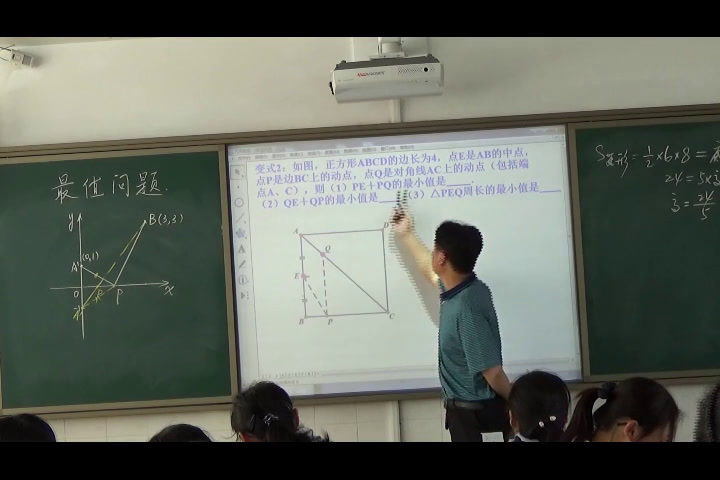 最值问题
y
B(3,3)
A
(0,1)
O
P
x
变式2：如图，正方形ABCD的边长为4，点E是AB的中点，
点P是边BC上的动点，点Q是对角线AC上的动点（包括端
点A、C），则（1）PE＋PQ的最小值是____
（2）QE＋QP的最小值是____（3）△PEQ周长的最小值是____
A
D
Q
E
B
P
C
S菱形=1/2×6×8=
24=5×
=24/5